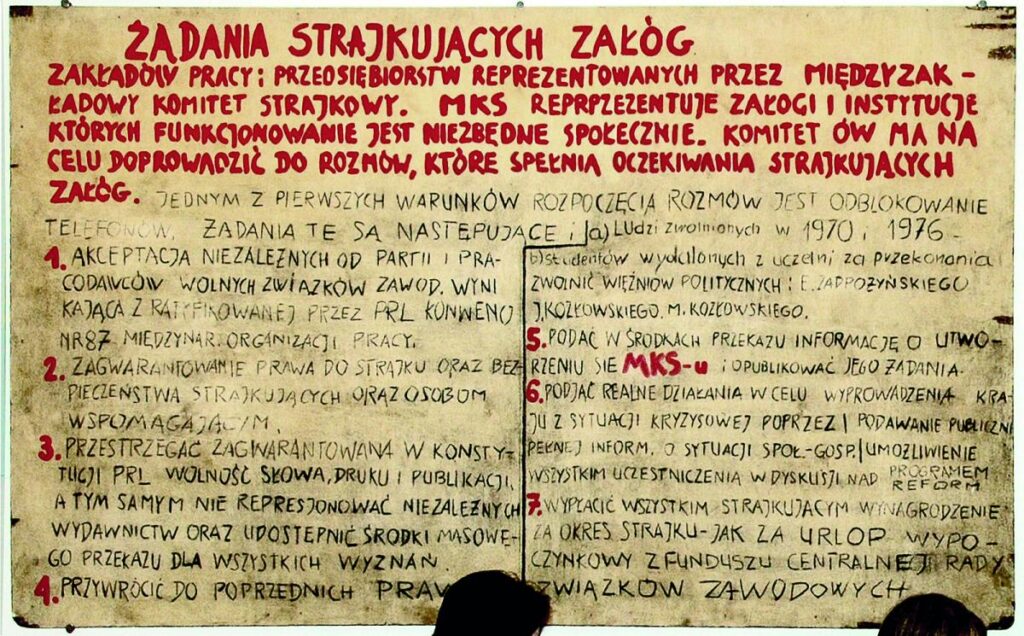 ŻĄDANIA STRAJKUJĄCYCH ZAŁÓG
ZAKŁADÓW PRACY i PRZEDSIĘBIORSTW REPREZENTOWANYCH PRZEZ MIĘDZYZAK-
ŁADOWY KOMITET STRAJKOWY. MKS REPRPZEZENTUJE ZAŁOGI I INSTYTUCJE
KTÓRYCH FUNKCJONOWANIE JEST NIEZBĘDNE SPOŁECZNIE. KOMITET ÓW MA NA
CELU DOPROWADZIĆ DO ROZMÓW, KTÓRE SPEŁNIĄ OCZEKIWANIA STRAJKUJĄCYCH
ZAŁÓG. JEDNYM Z PIERWSZYCH WARUNKÓW ROZPOCZĘCIA ROZMÓW JEST ODBLOKOWANIE
TELEFONÓW. ŻĄDANIA TE SĄ NASTĘPUJĄCE:
1. AKCEPTACJA NIEZALEŻNYCH OD PARTII I PRA-
CODAWCÓW WOLNYCH ZWIĄZKÓW ZAWOD. WYNI
KAJĄCA Z RATYFIKOWANEJ PRZEZ PRL KONWENCJ
NR87 MIĘDZYNAR. ORGANIZACJI PRACY.
2. ZAGWARANTOWANIE PRAWA DO STRAJKU ORAZ BEZ-
PIECZEŃSTWA STRAJKUJĄCYCH ORAZ OSOBOM
WSPOMAGAJĄCYM.
3. PRZESTRZEGAĆ ZAGWARANTOWANĄ W KONSTY-
TUCJI PRL WOLNOŚĆ SŁOWA, DRUKU I PUBLIKACJI,
A TYM SAMYM NIE REPRESJONOWAĆ NIEZALEŻNYCH
WYDAWNICTW ORAZ UDOSTĘPNIĆ ŚRODKI MASOWE-
GO PRZEKAZU DLA WSZYSTKICH WYZNAŃ.
4. PRZYWRÓCIĆ DO POPRZEDNICH PRAW
a) LUDZI zwolnionych w 1970 i 1976-
b) studentów wydalonych z uczelni za przekonania
ZWOLNIĆ WIĘŹNIÓW POLITYCZNYCH: E. ZADROŻYŃSKIEGO
J. KOZŁOWSKIEGO, M. KOZŁOWSKIEGO.
5. PODAĆ W ŚRODKACH PRZEKAZU INFORMACJĘ O UTWO-
RZENIU SIĘ MKS-u I OPUBLIKOWAĆ JEGO ŻĄDANIA.
6. PODJĄĆ REALNE DZIAŁANIA W CELU WYPROWADZENIA KRA-
JU Z SYTUACJI KRYZYSOWEJ POPRZEZ | PODAWANIE PUBLICZNI
PEŁNEJ INFORM. O SYTUACJI SPOŁ-GOSP. | UMOŻLIWIENIE
WSZYSTKIM UCZESTNICZENIA W DYSKUSJI NAD PROGRAMEM
REFORM
7. WYPŁACIĆ WSZYSTKIM STRAJKUJĄCYM WYNAGRODZENIE
ZA OKRES STRAJKU-JAK ZA URLOP WYPO-
CZYNKOWY Z FUNDUSZU CENTRALNEJ RADY
ZWIĄZKÓW ZAWODOWYCH